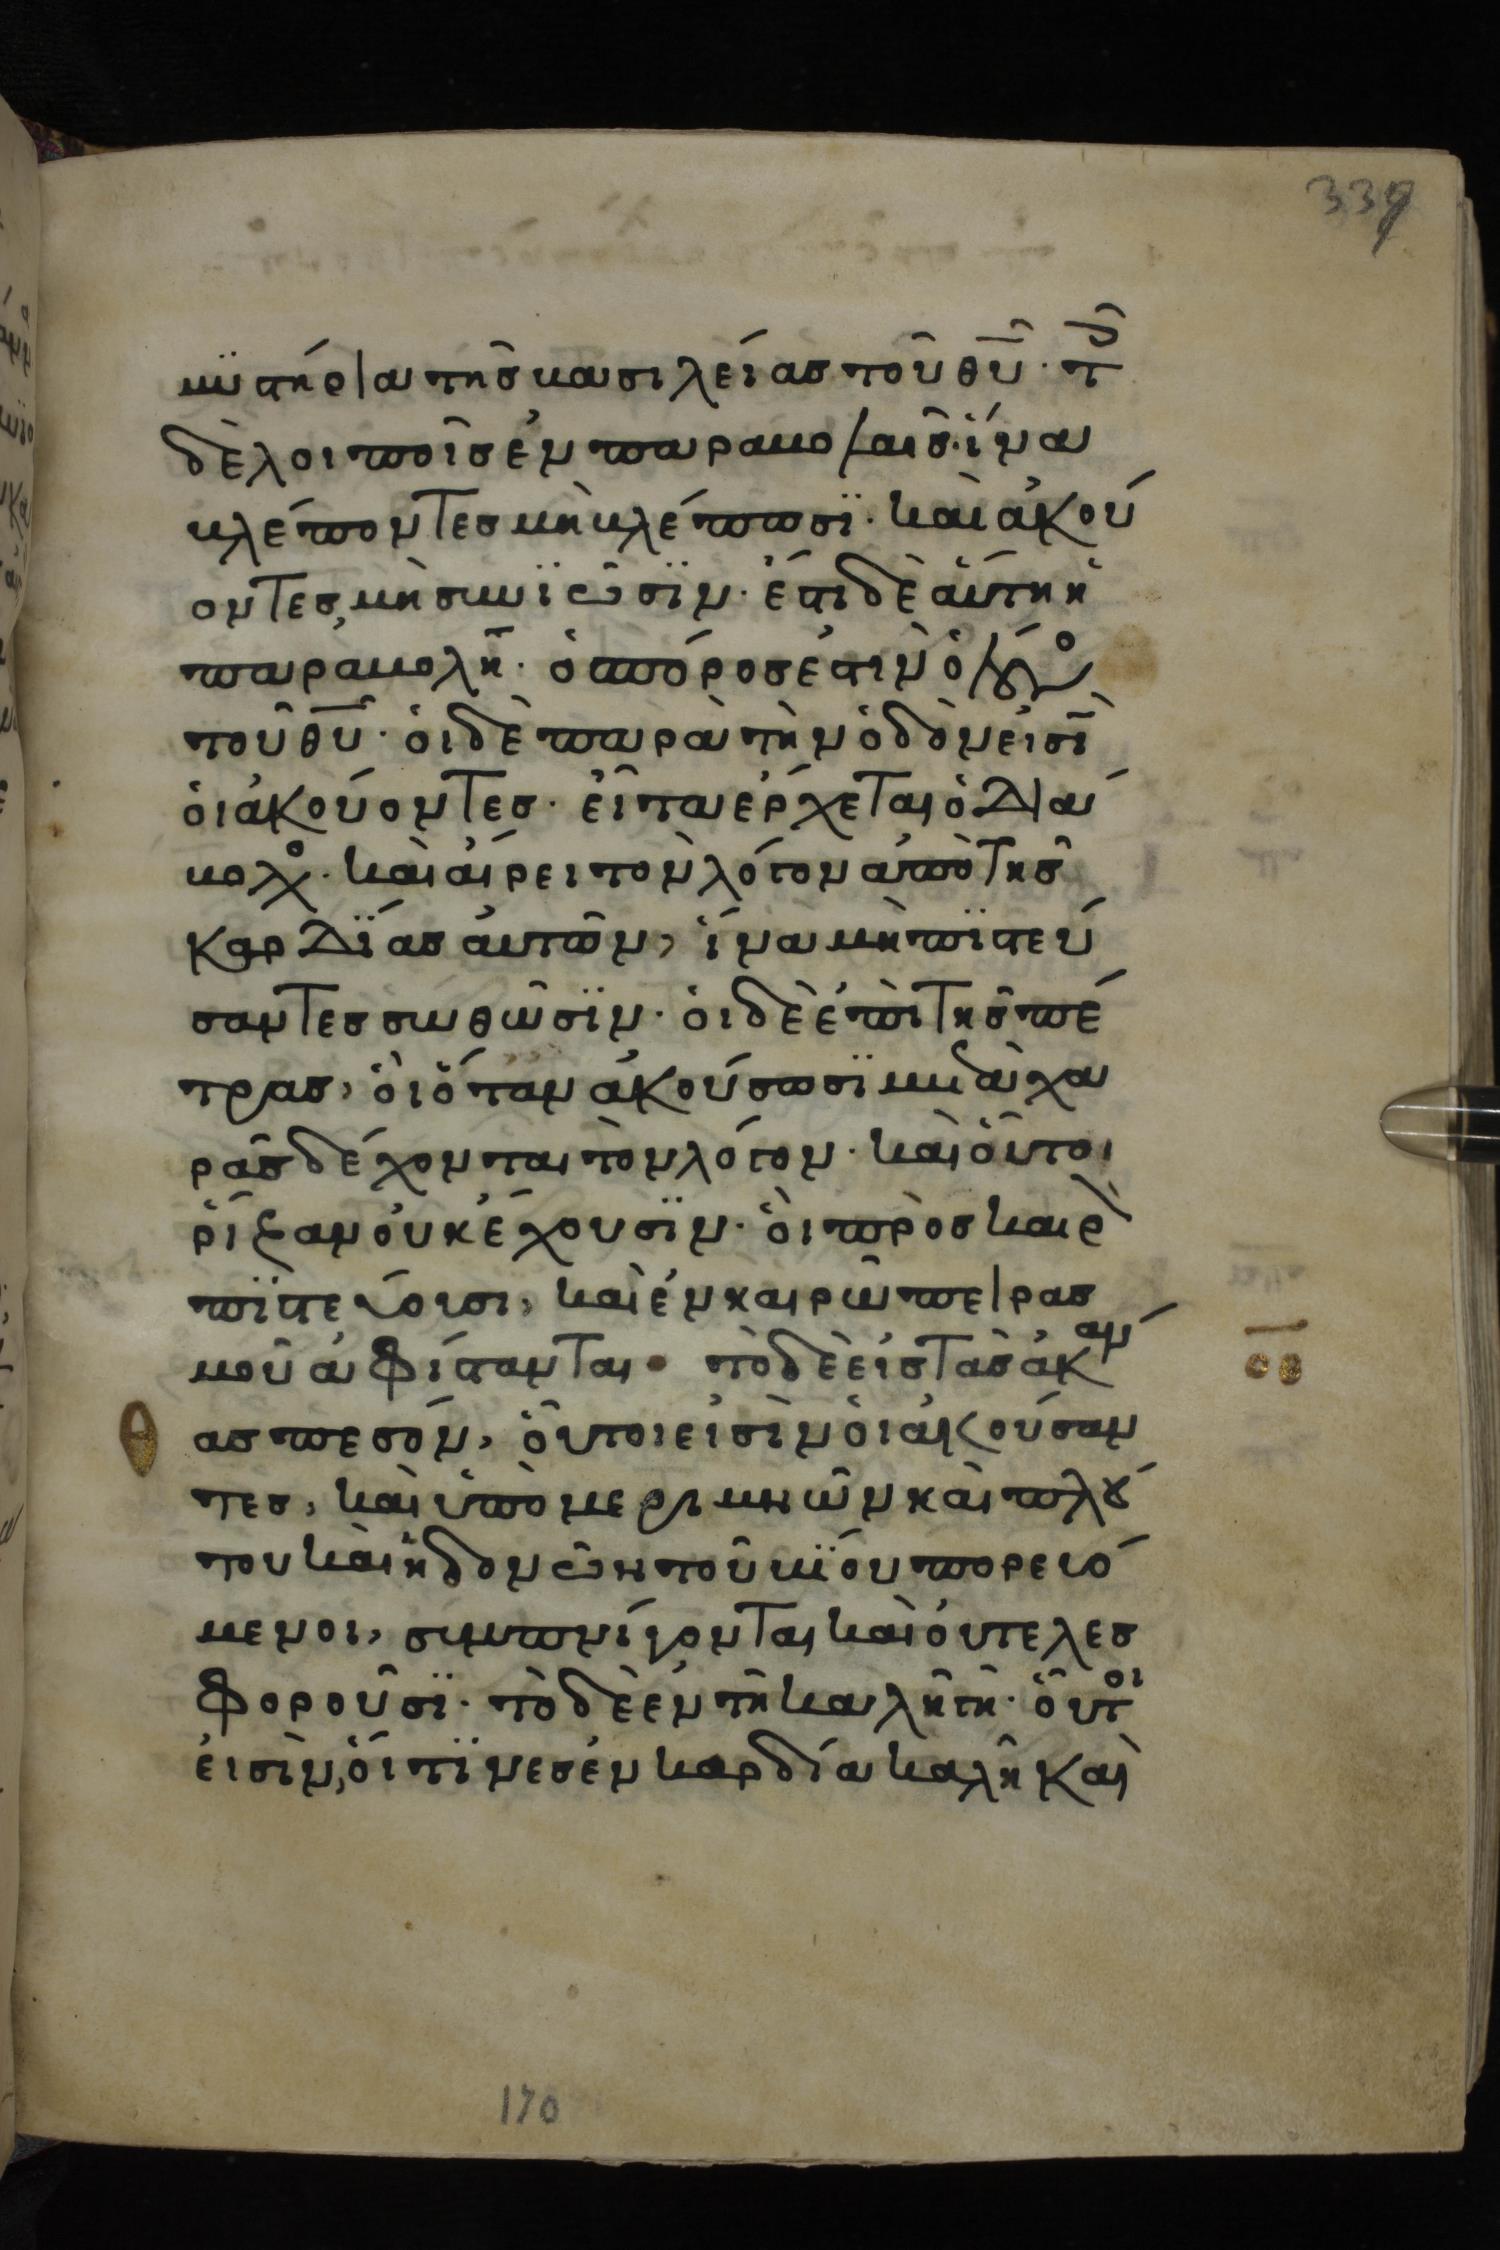 339
μυστήρια τῆς βασιλείας τοῦ θυ̅· τοῖς
δὲ λοιποῖς ἐν παραβολαῖς· ἵνα
βλέποντες μὴ βλέπωσϊ· καὶ ἀκού
οντες, μὴ συνϊῶσϊν· ἔστι δὲ ἅυτη ἡ
παραβολή· ὁ σπόρος ἐστιν ὁ λόγος
τοῦ θυ̅· ὁι δὲ παρὰ τὴν ὁδὸν ἐισὶ
ὁι ἀκούοντες· ἐῖτα ἔρχεται ὁ διά
βολος· καὶ αἴρει τὸν λόγον ἀπὸ τῆς
καρδΐας ἀυτῶν, ἵνα μὴ πϊστεύ
σαντες σωθῶσϊν· ὁι δὲ ἐπὶ τῆς πέ
τρας, ὁὶ ὅταν ἀκούσωσϊ μετὰ χα
ρᾶς δέχονται τὸν λόγον· καὶ ὅυτοι
ῥίζαν ὀυκ ἔχουσϊν· ὁὶ πρὸς καιρὸν
πϊστεύουσι, καὶ ἐν καιρῶ πειρασ
μοῦ ἀφίστανται· τὸ δὲ ἐις τὰς ἀκάν
ας πεσὸν, ὅυτοι ἐισὶν ὁι ἀκούσαν
τες, καὶ ὑπὸ μεριμνῶν καὶ πλού
του καὶ ἡδονῶν τοῦ βϊου πορευό
μενοι, συμπνίγονται καὶ ὀυ τελεσ
φοροῦσϊ· τὸ δὲ ἐν τῆ καλῆ γῆ· ὅυτοι
ἐισὶν, ὅιτϊνες ἐν καρδία καλῆ καὶ
170